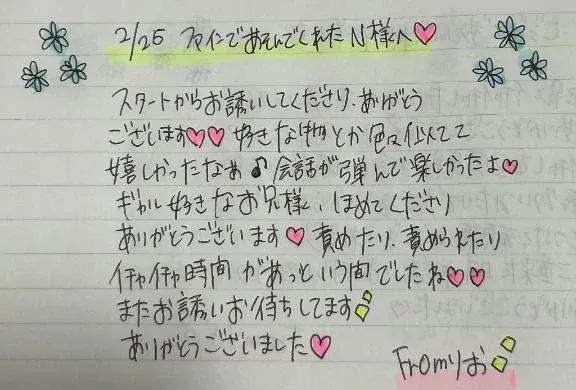 2/25 ファインであそんでくれたN様へ♡
スタートからお誘いしてくださり、ありがとう
ございます♡♡ 好きな物とか色々似てて
嬉しかったなぁ♪ 会話が弾んで楽しかったよ♡
ギャル好きなお兄様、ほめてくださり
ありがとうございます♡ 責めたり、責められたり
イチャイチャ時間があっという間でしたね♡♡
またお誘いお待ちしてます
ありがとうございました♡
Fromりお